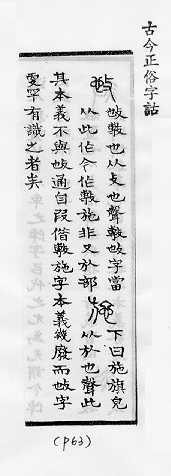 古今正俗字詁
𢻱敷也从攴也聲敷𢻱字當
从此作今作敷施非又㫃部
施下曰施旗皃
从㫃也聲此
其本義不與𢻱通自叚借敷施字本義幾廢而𢻱字
更罕有識之者矣
(P63)